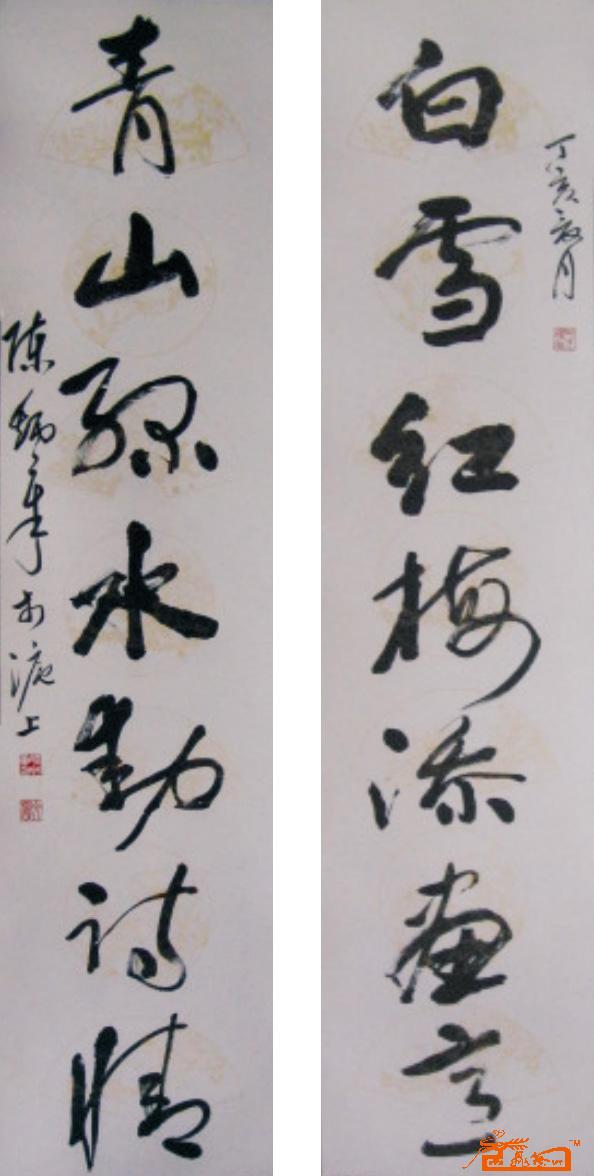 丁亥
月
白雪红梅添画意
青山绿水动诗情
陈
于沪上